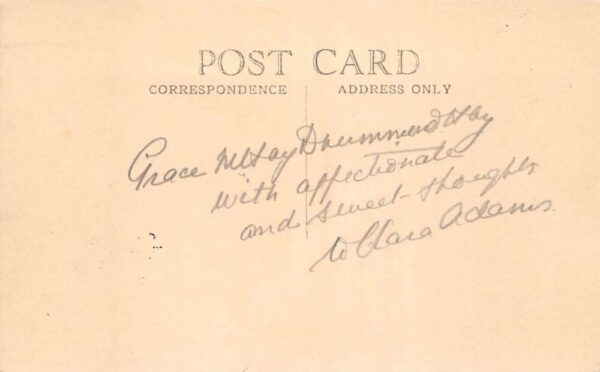 POST CARD
CORRESPONDENCE ADDRESS ONLY
Grace M Hay Drummond Hay
with affectionate
and sweet thoughts
to Clara Adams